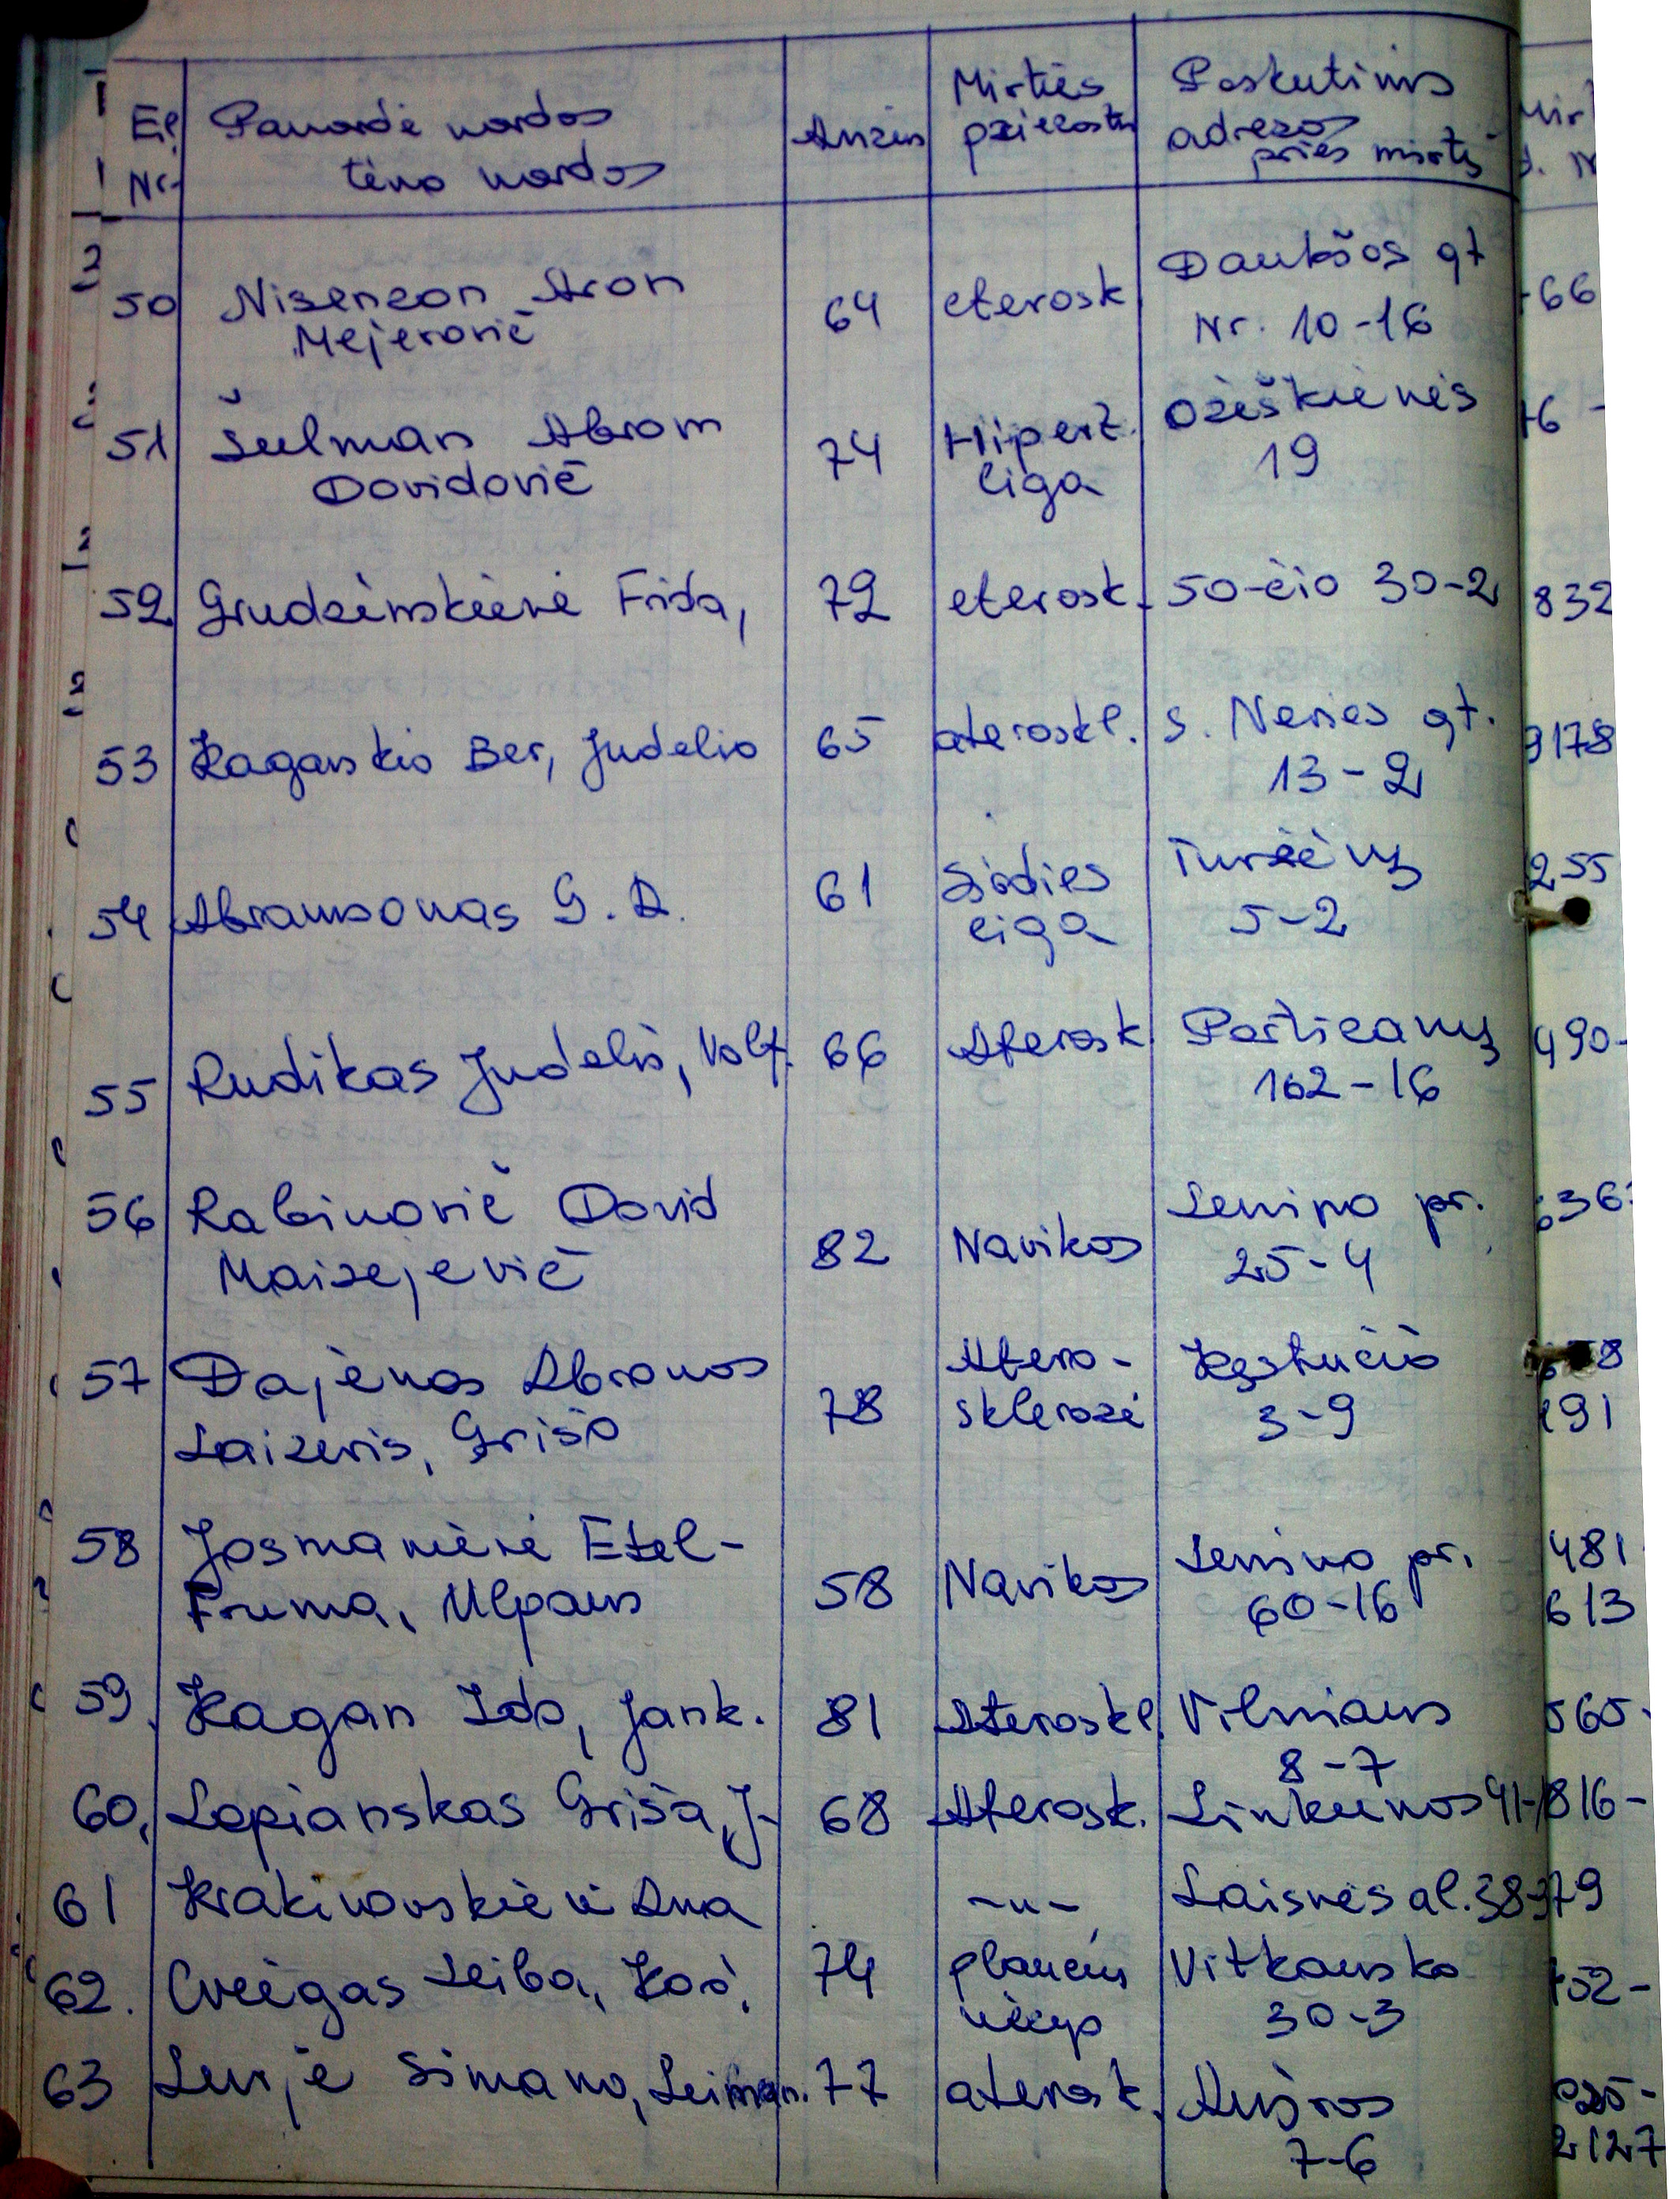 Eil Nr. Pavardė vardas tėvo vardas Amžius Mirties priežastis Paskutinis adresas prieš mirtį
50 Nisenzon Aron 64 eterosk Daukšos gt
Mejerovič Nr. 10-16 66
51 Šulman Abrom 74 Hipert. Ožeškienės 76 -
Dovidovič liga 19
52 Grudzinskienė Frida, 72 eterosk. 50-čio 30-2 832
53 Kaganskis Ber, Judelio 65 ateroskl. S. Neries gt. 9178
13-2
54 Abramsonas G. A. 61 Širdies 255
liga 5-2
55 Rudikas Judelis, Volf. 66 Aterosk Partizanų 490-
162-16
56 Rabinovič David 82 Navikas Lenino pr.
Maizejevič 25-4
57 Dajenas Abramas 78 Atero- Kęstučio
Laizeris, Grišo sklerozė 3-9 191
58 Josmanienė Etel- 58 Navikas Lenino pr. 481
Fruma, 60-16 613
59. Kagan Ida, Jank. 81 Ateroskl. Vilniaus 565-
8-7
60. Lapianskas Griša, J. 68 Aterosk. Linkuvos 91- 816-
61 Krakinovskienė Ana -"- Laisvės al. 38-
62. Cveigas Leiba, 74 plaučių Vitkausko 752-
vėžys 30-3
63 Lurje Simano, Leiman. 77 aterosk. Aušros
7-6 2127